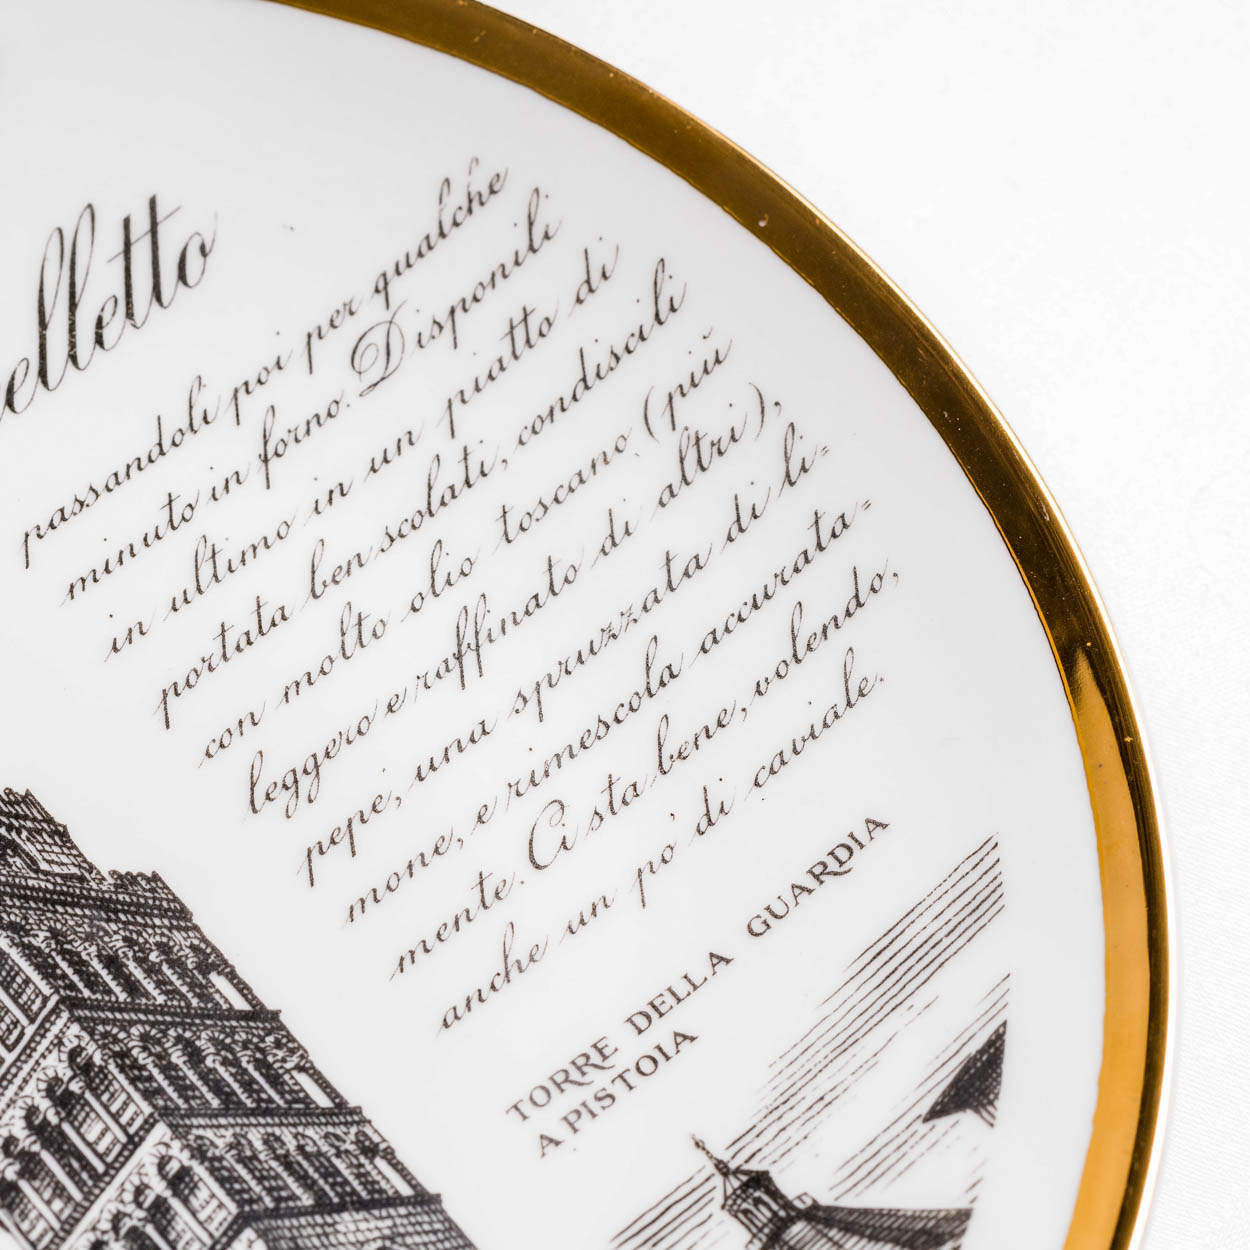 elletto
passandoli poi per qualche
minuto in forno. Disponili
in ultimo in un piatto di
portata ben scolati, condiscili
con molto olio toscano, (più
leggero e raffinato di altri),
pepe, una spruzzata di li-
mone, e rimescola accurata-
mente. Ci sta bene, volendo,
anche un po' di caviale.
TORRE DELLA GUARDIA
A PISTOIA